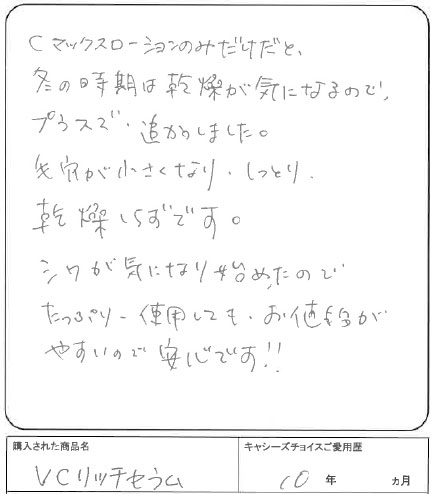 Cマックスローションのみだけだと、
冬の時期は乾燥が気になるので、
プラスで、追加しました。
毛穴が小さくなり、しっとり、
乾燥しらずです。
シワが気になり始めたので
たっぷり使用しても、お値段が
やすいので安心です!!
購入された商品名
キャシーズチョイスご愛用歴
VCリッチセラム
10年 ヵ月